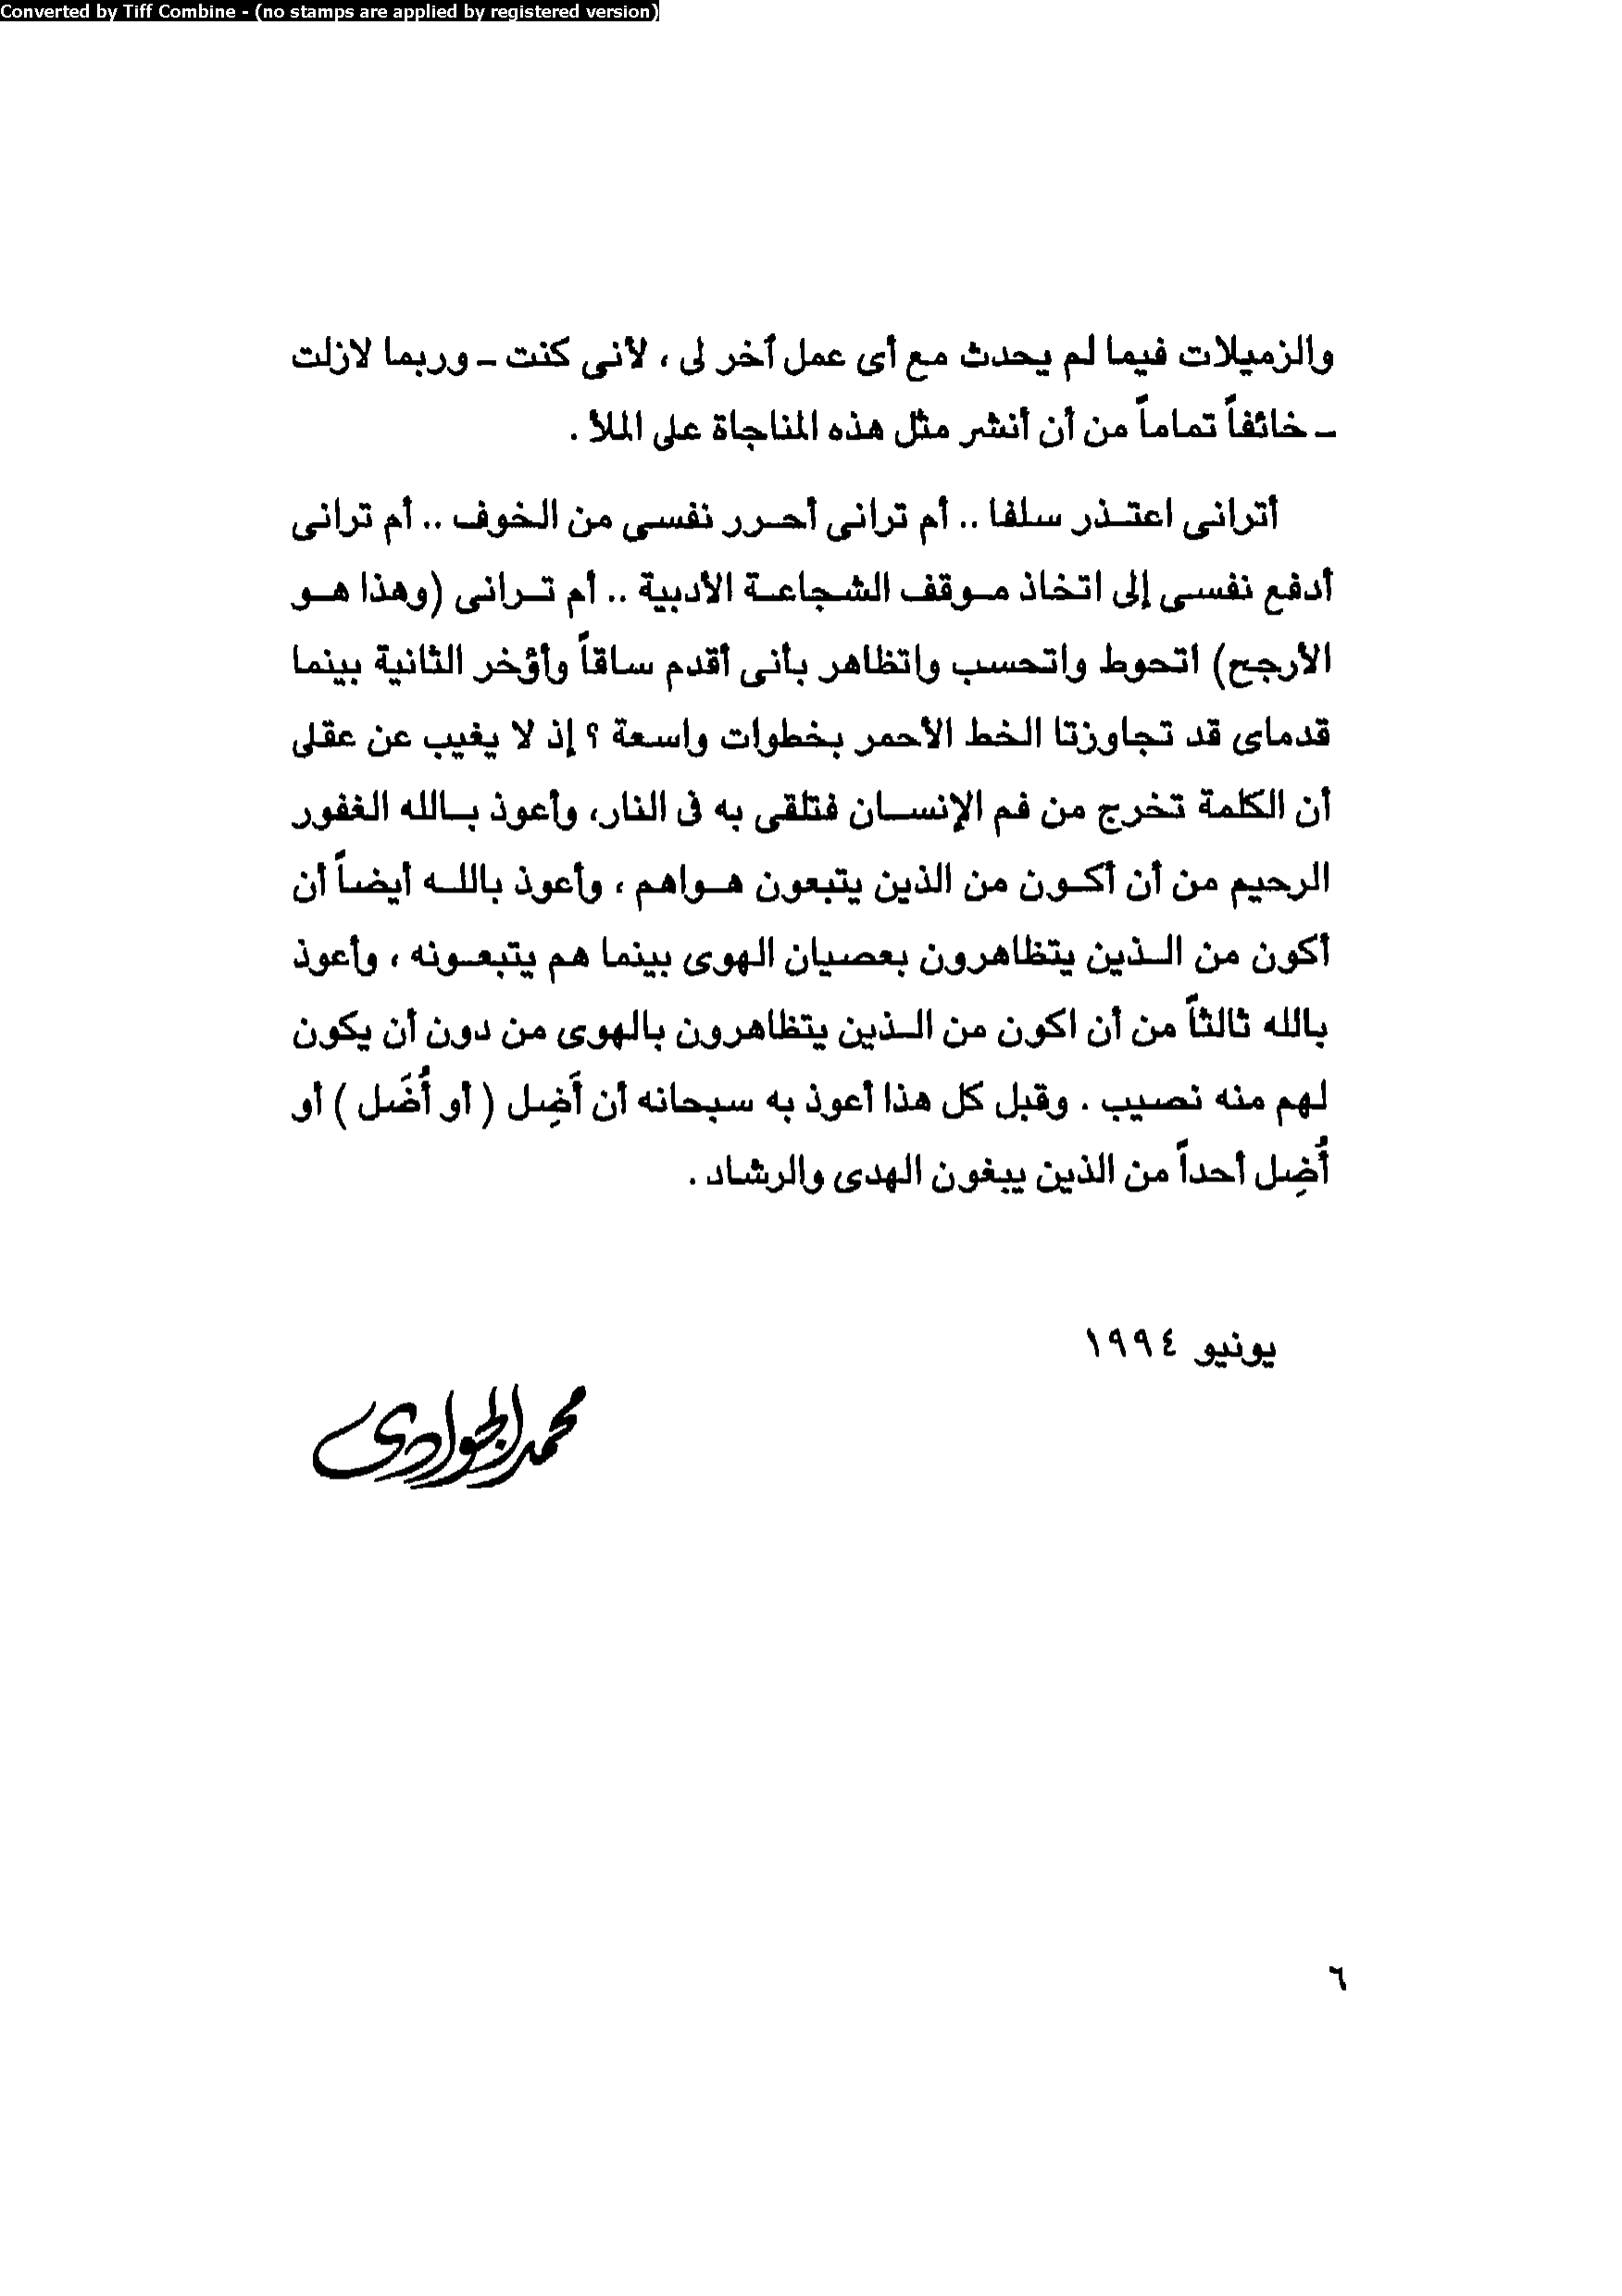 Converted by Tiff Combine - (no stamps are applied by registered version)
والزميلات فيما لم يحدث مع أى عمل آخر لى ، لأنى كنت ـ وربما لازلت
ـ خائفاً تماماً من أن أنشر مثل هذه المناجاة على الملأ .
أترانى اعتـذر سلفا .. أم ترانى أحـرر نفسى من الخوف .. أم ترانى
أدفع نفسى إلى اتخاذ مـوقف الشجاعـة الأدبية .. أم تـرانى (وهذا هـو
الأرجح) اتحوط واتحسب واتظاهر بأنى أقدم ساقاً وأؤخر الثانية بينما
قدماى قد تجاوزتا الخط الأحمر بخطوات واسعة ؟ إذ لا يغيب عن عقلى
أن الكلمة تخرج من فم الإنسـان فتلقى به فى النار، وأعوذ بـالله الغفور
الرحيم من أن أكـون من الذين يتبعون هـواهم ، وأعوذ باللـه أيضاً أن
أكون من الـذين يتظاهرون بعصيان الهوى بينما هم يتبعـونه ، وأعوذ
بالله ثالثاً من أن اكون من الـذين يتظاهرون بالهوى من دون أن يكون
لهم منه نصيب . وقبل كل هذا أعوذ به سبحانه أن أَضِل ( أو أُضَل ) أو
أُضِل أحداً من الذين يبغون الهدى والرشاد .
يونيو ١٩٩٤
محمد الجوادى
٦